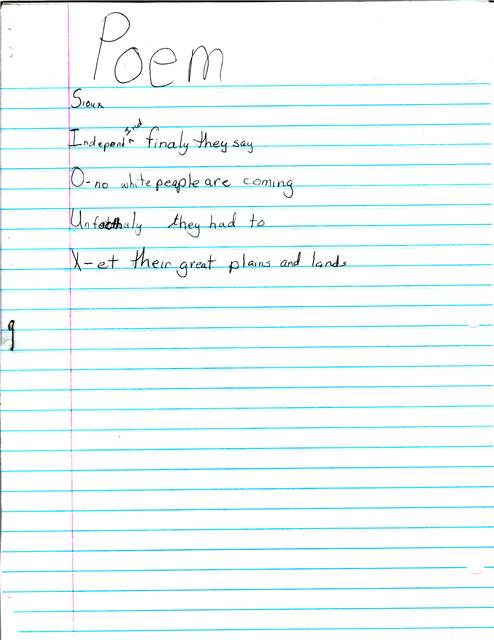 Poem
Sioux
Independ Ind finaly they say
O-no white people are coming
they had to
X-et their great plains and lands
9